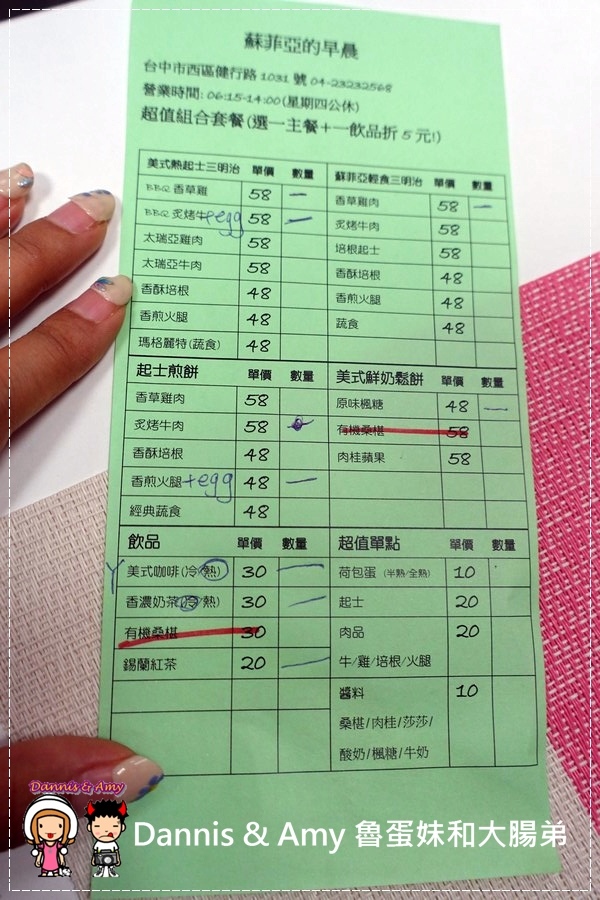 蘇菲亞的早晨
台中市西區健行路 1031 號 04-23232568
營業時間: 06:15-14:00(星期四公休)
超值組合套餐(選一主餐+一飲品折 5 元!)
美式熱起士三明治 單價 數量
BBQ 香草雞 58 一
BBQ 炙烤牛+egg 58 一
太瑞亞雞肉 58
太瑞亞牛肉 58
香酥培根 48
香煎火腿 48
瑪格麗特(蔬食) 48
蘇菲亞輕食三明治 單價 數量
香草雞肉 58 一
炙烤牛肉 58
培根起士 58
香酥培根 48
香煎火腿 48
蔬食 48
起士煎餅 單價 數量
香草雞肉 58
炙烤牛肉 58
香酥培根 48
香煎火腿+egg 48 一
經典蔬食 48
美式鮮奶鬆餅 單價 數量
原味楓糖 48 一
有機桑椹 58
肉桂蘋果 58
飲品 單價 數量
美式咖啡(冷/熱) 30 一
香濃奶茶(冷/熱) 30 一
有機桑椹 30
錫蘭紅茶 20 一
超值單點 單價 數量
荷包蛋 (半熟/全熟) 10
起士 20
肉品 20
牛/雞/培根/火腿
醬料 10
桑椹/肉桂/莎莎/
酸奶/楓糖/牛奶
Dannis & Amy
Dannis & Amy 魯蛋妹和大腸弟